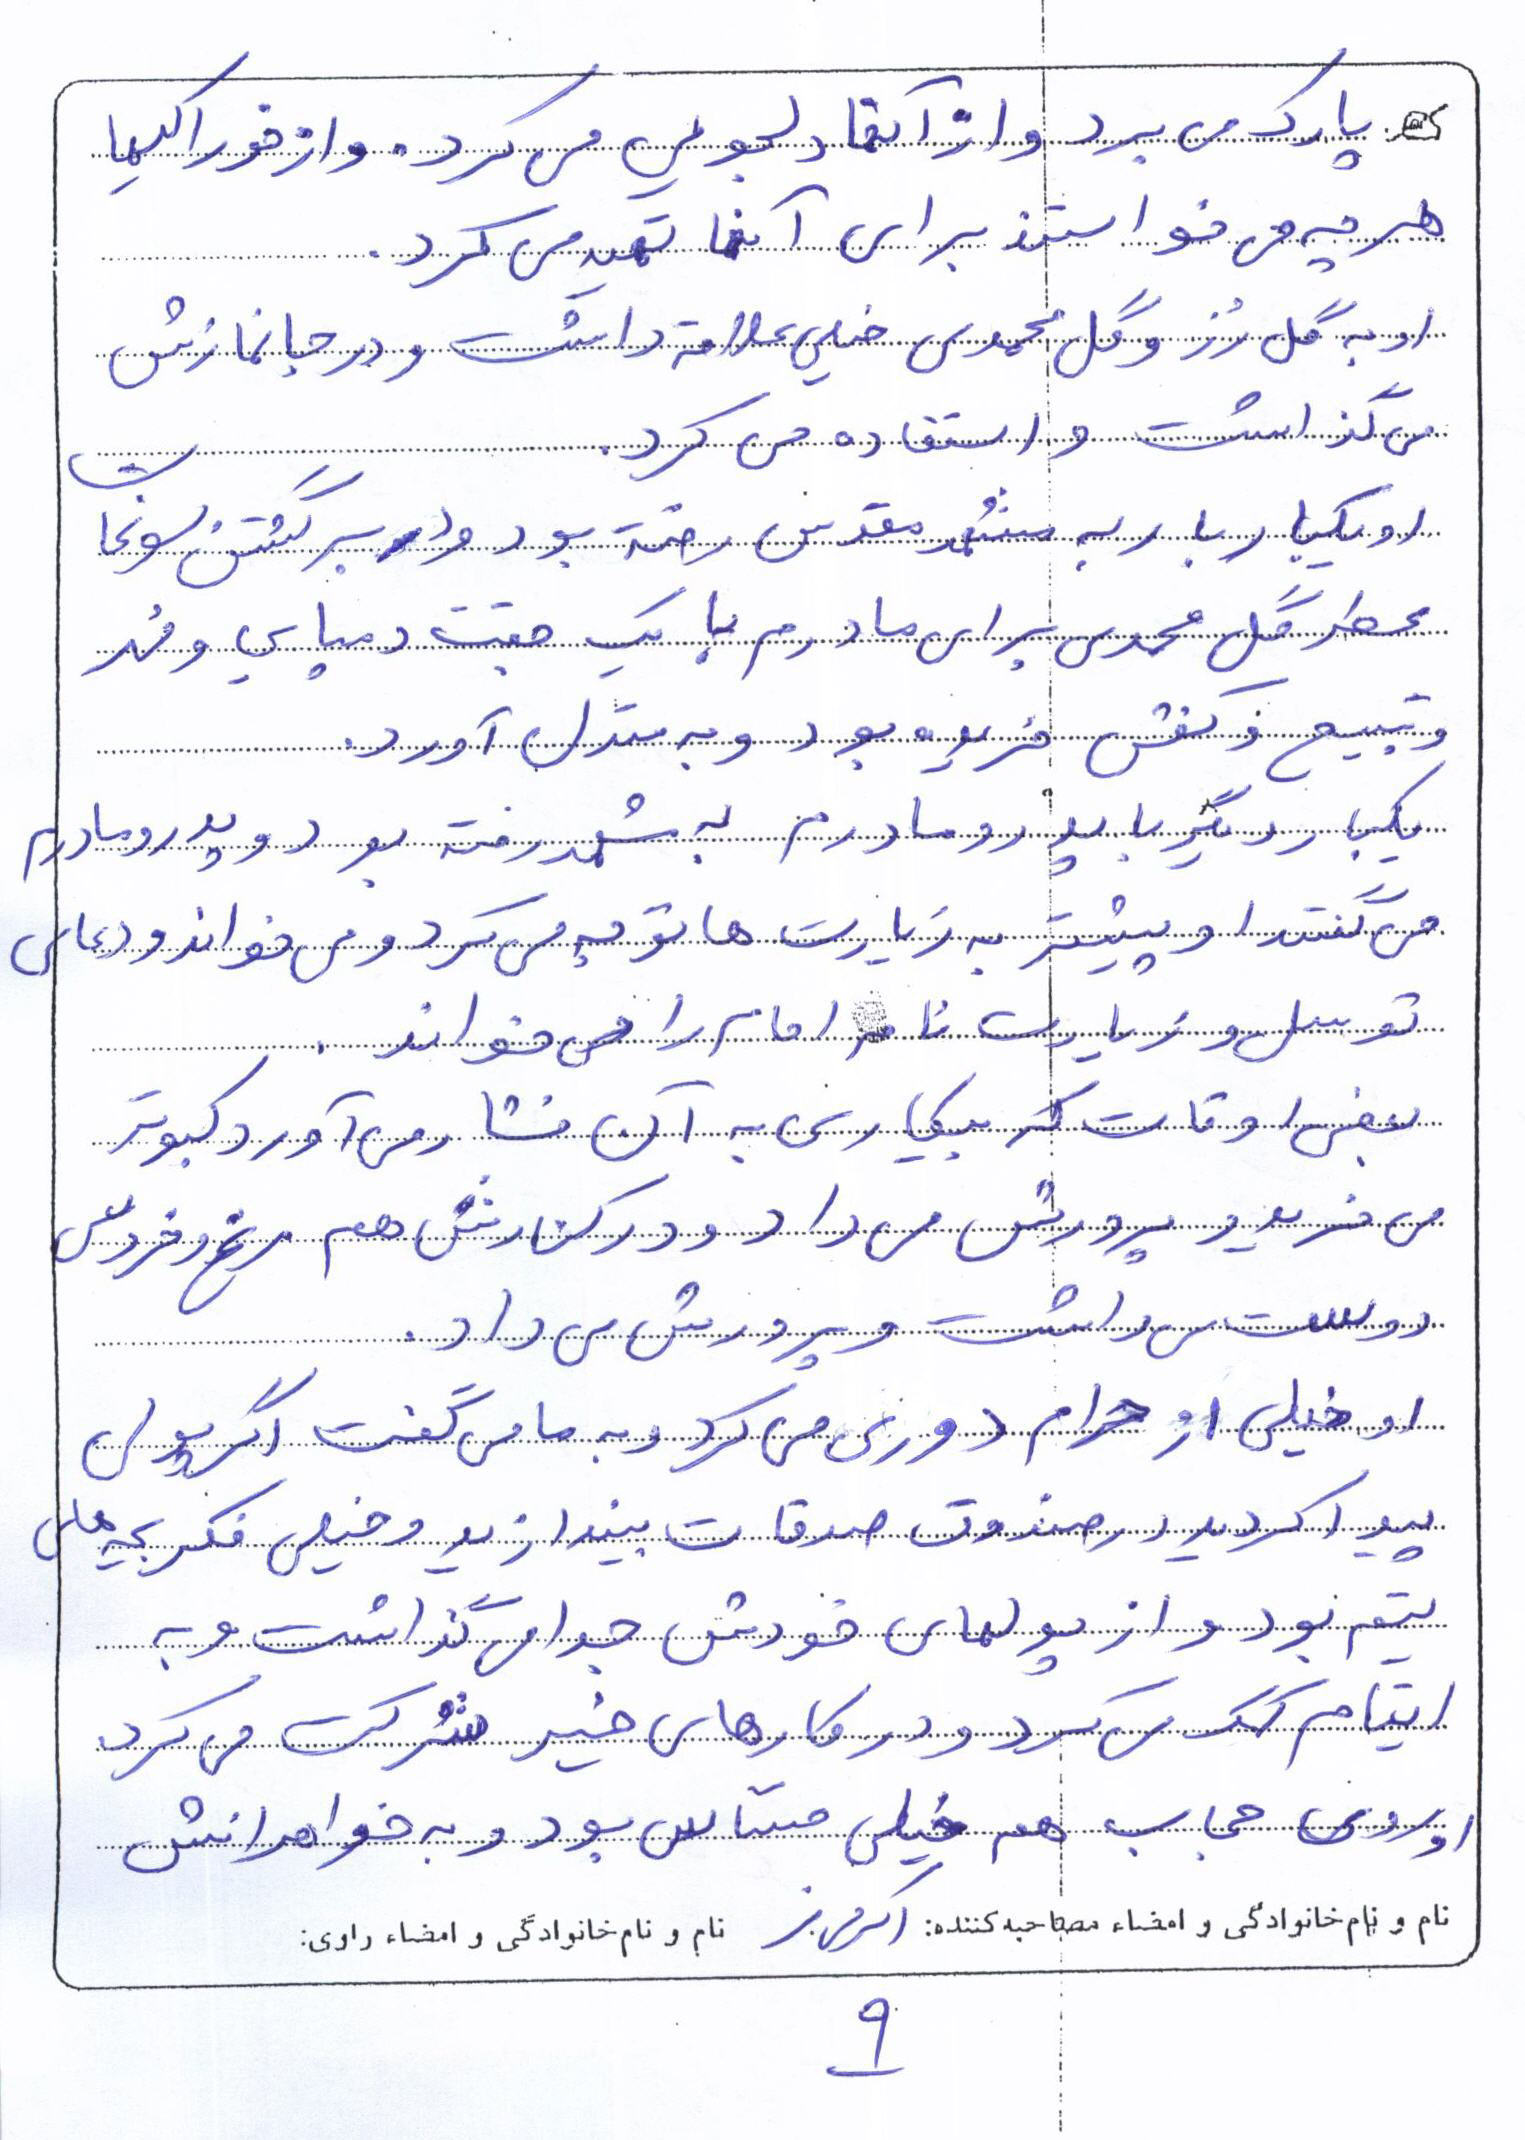 پارک می برد و از آنها دلجویی می کرد. و از خوراکیها
هر چه می خواستند برای آنها تهیه می کرد.
او به گل رُز و گل محمدی خیلی علاقه داشت و در جانمازش
می گذاشت و استفاده می کرد.
او یکبار به مشهد مقدس رفته بود و در برگشتن سوغات
عطر گل محمدی برای مادرم با یک جفت دمپایی و مُهر
و تسبیح و کفش خریده بود و به منزل آورد.
یکبار دیگر با پدر و مادرم به مشهد رفته بود و پدر و مادرم
می گفتند او بیشتر به زیارت ها توجه می کرد و می خواند و دعای
توسل و زیارت نامه امام را می خواند.
بعضی اوقات که بیکاری به آن فشار می آورد کبوتر
می خرید و پرورش می داد و در کنارش هم مرغ و خروس
دوست می داشت و پرورش می داد.
او خیلی از حرام دوری می کرد و به ما می گفت اگر پولی
پیدا کردید در صندوق صدقات بیندازید و خیلی فکر بچه های
یتیم بود و از پولهای خودش جدا می گذاشت و به
ایتام کمک می کرد و در کارهای خیر شرکت می کرد
او روی حجاب هم خیلی حساس بود و به خواهرانش
نام و نام خانوادگی و امضاء مصاحبه کننده: نام و نام خانوادگی و امضاء راوی:
۹